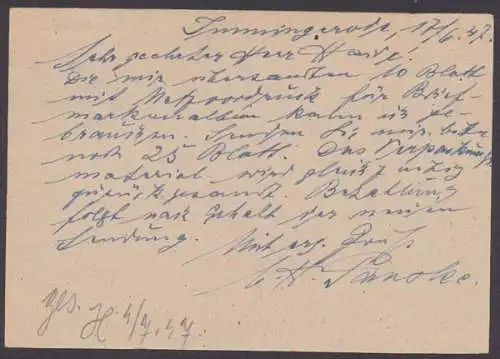 Immingerode, 17/6.47.
Sehr geehrter Herr
Die mir übersandten 10 Blatt
mit Netzvordruck für Brief-
markenalbum kann ich ge-
brauchen. Senden Sie mir bitte
noch 25 Blatt. Das Verpackungs-
material wird gleich
zurück gesandt. Bezahlung
folgt nach Erhalt der neuen
Sendung.
Mit Gruß
ges. H. 4/7.47.